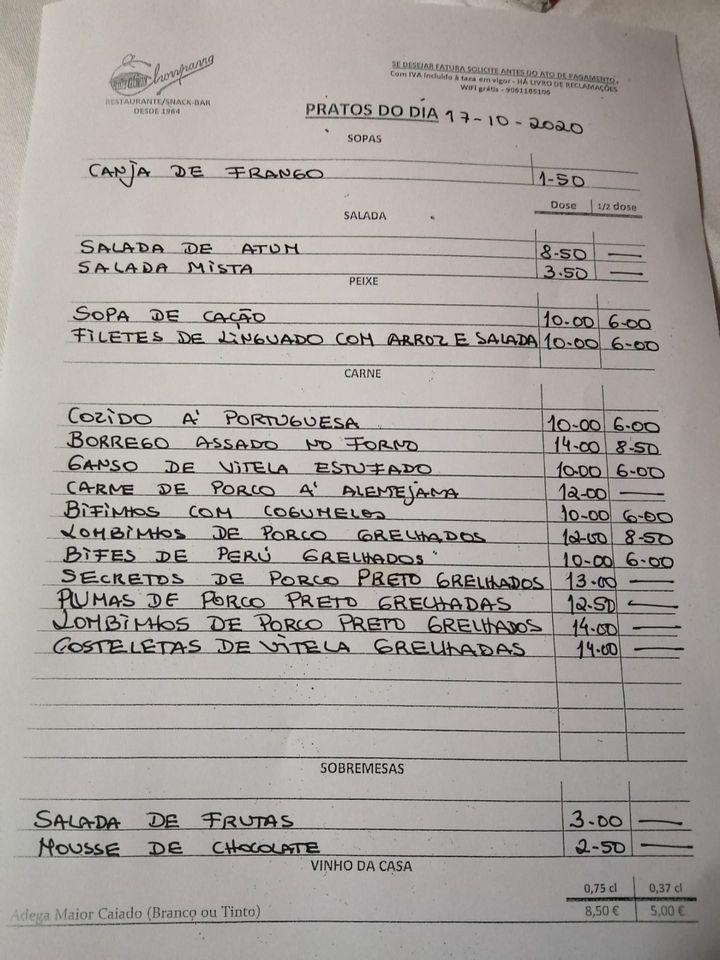 Chompanna
RESTAURANTE/SNACK-BAR
DESDE 1964
SE DESEJAR FATURA SOLICITE ANTES DO ATO DE PAGAMENTO,
Com IVA incluído à taxa em vigor - HÁ LIVRO DE RECLAMAÇÕES
WIFI grátis - 9061185106
PRATOS DO DIA 17-10-2020
SOPAS
CANJA DE FRANGO 1-50
Dose 1/2 dose
SALADA
SALADA DE ATUM 8-50 —
SALADA MISTA 3.50 —
PEIXE
SOPA DE CAÇÃO 10-00 6-00
FILETES DE LINGUADO COM ARROZ E SALADA 10-00 6-00
CARNE
COZIDO A' PORTUGUESA 10-00 6-00
BORREGO ASSADO NO FORNO 14-00 8-50
GANSO DE VITELA ESTUFADO 10.00 6-00
CARNE DE PORCO A' ALENTEJANA 12-00 —
BIFINHOS COM COGUMELOS 10-00 6-00
LOMBINHOS DE PORCO GRELHADOS 12-00 8-50
BIFES DE PERÚ GRELHADOS 10-00 6-00
SECRETOS DE PORCO PRETO GRELHADOS 13-00 —
PLUMAS DE PORCO PRETO GRELHADAS 12-50 —
LOMBINHOS DE PORCO PRETO GRELHADOS 14-00 —
COSTELETAS DE VITELA GRELHADAS 14-00 —
SOBREMESAS
SALADA DE FRUTAS 3-00 —
MOUSSE DE CHOCOLATE 2-50 —
VINHO DA CASA
0,75 cl 0,37 cl
Adega Maior Caiado (Branco ou Tinto) 8,50 € 5,00 €